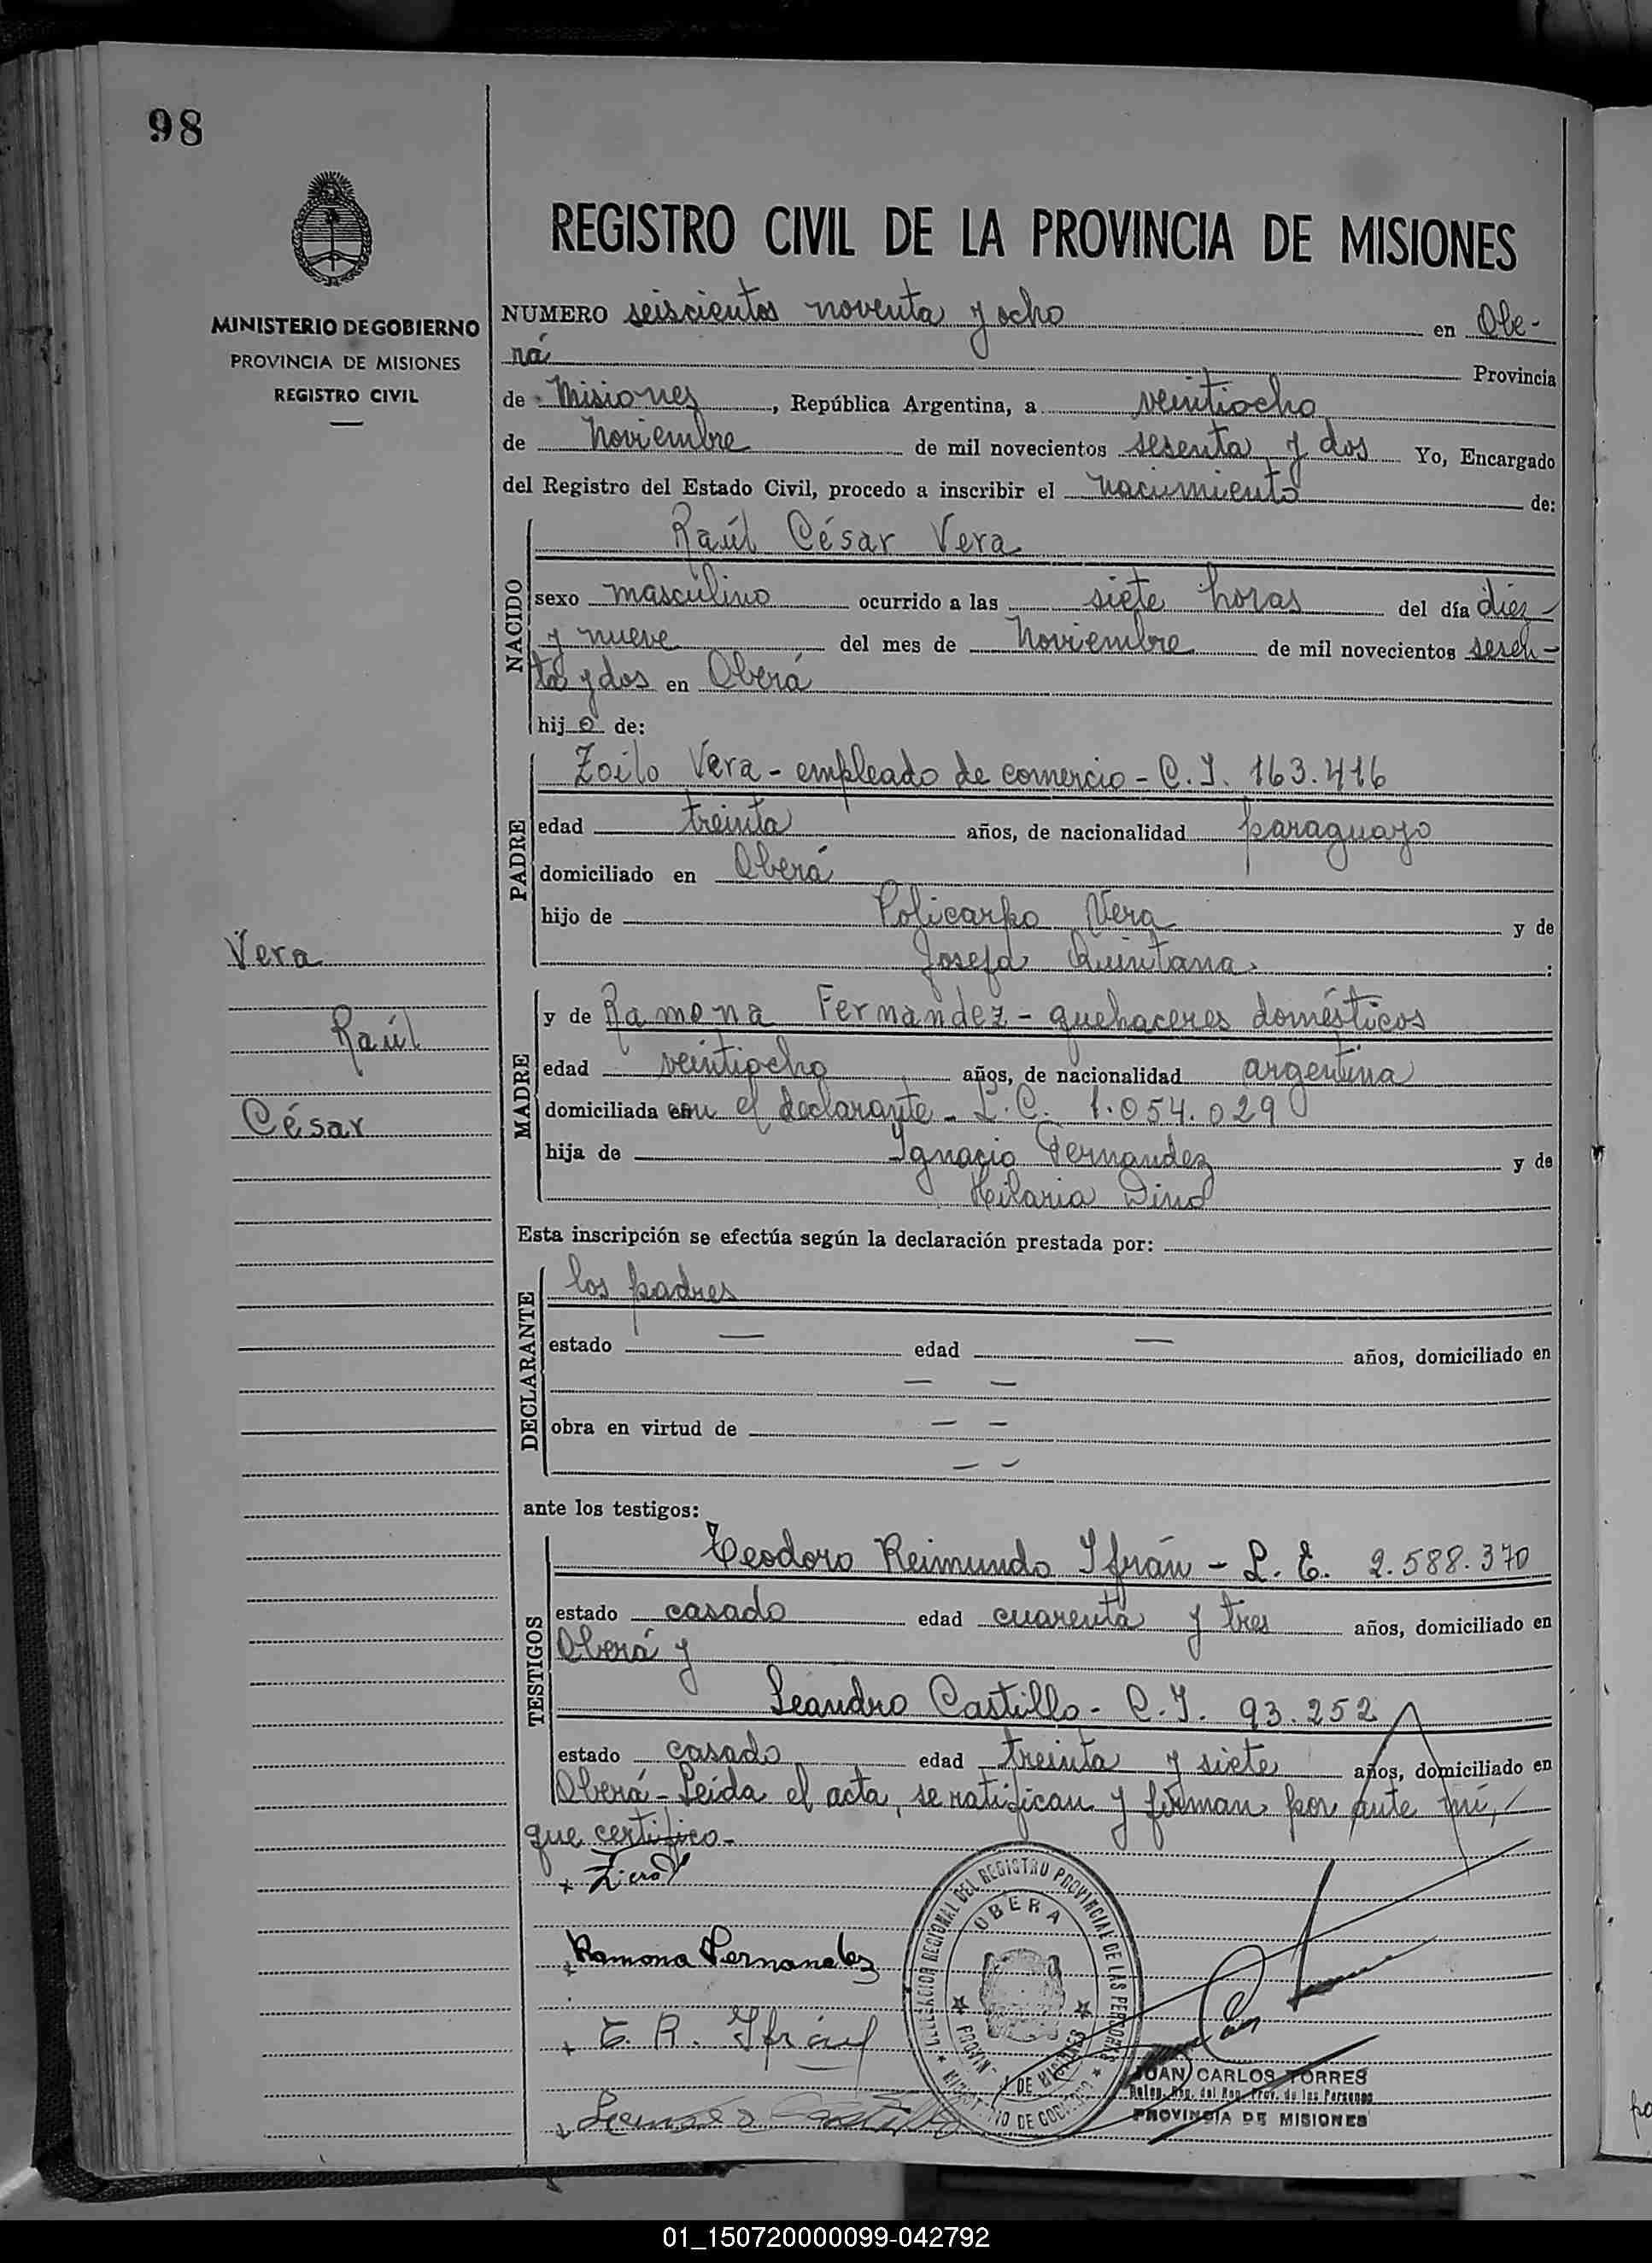 98
MINISTERIO DE GOBIERNO
PROVINCIA DE MISIONES
REGISTRO CIVIL
Vera
Raúl
César
REGISTRO CIVIL DE LA PROVINCIA DE MISIONES
NUMERO seiscientos noventa y ocho en Obe-
rá Provincia
de Misiones, República Argentina, a veintiocho
de Noviembre de mil novecientos sesenta y dos Yo, Encargado
del Registro del Estado Civil, procedo a inscribir el nacimiento de:
NACIDO
Raúl César Vera
sexo masculino ocurrido a las siete horas del día diez
y nueve del mes de Noviembre de mil novecientos sesen-
ta y dos en Oberá
hijo de:
PADRE
Zoilo Vera - empleado de comercio - C.I. 163.416
edad treinta años, de nacionalidad paraguayo
domiciliado en Oberá
hijo de Policarpo Vera y de
Josefa Quintana :
MADRE
y de Ramona Fernández - quehaceres domésticos
edad veintiocho años, de nacionalidad argentina
domiciliada con el declarante - L.C. 1.054.029
hija de Ignacio Fernandez y de
Hilaria
Esta inscripción se efectúa según la declaración prestada por:
DECLARANTE
los padres
estado — edad — años, domiciliado en
— —
obra en virtud de — —
— —
ante los testigos:
TESTIGOS
Teodoro Reimundo Ifrán - L. E. 2.588.370
estado casado edad cuarenta y tres años, domiciliado en
Oberá y
Leandro Castillo - C.I. 93.252
estado casado edad treinta y siete años, domiciliado en
Oberá - Leída el acta, se ratifican y firman por ante mí,
que certifico -
x
x Ramona Fernandez
x T. R. Ifrán
x Leandro Castillo
DELEGACION REGIONAL DEL REGISTRO PROVINCIAL DE LAS PERSONAS
OBERA
PROVIN DE MISIONES
MINISTERIO DE GOBIERNO
JUAN CARLOS TORRES
Deleg. Reg. del Reg. Prov. de las Personas
PROVINCIA DE MISIONES
01_150720000099-042792